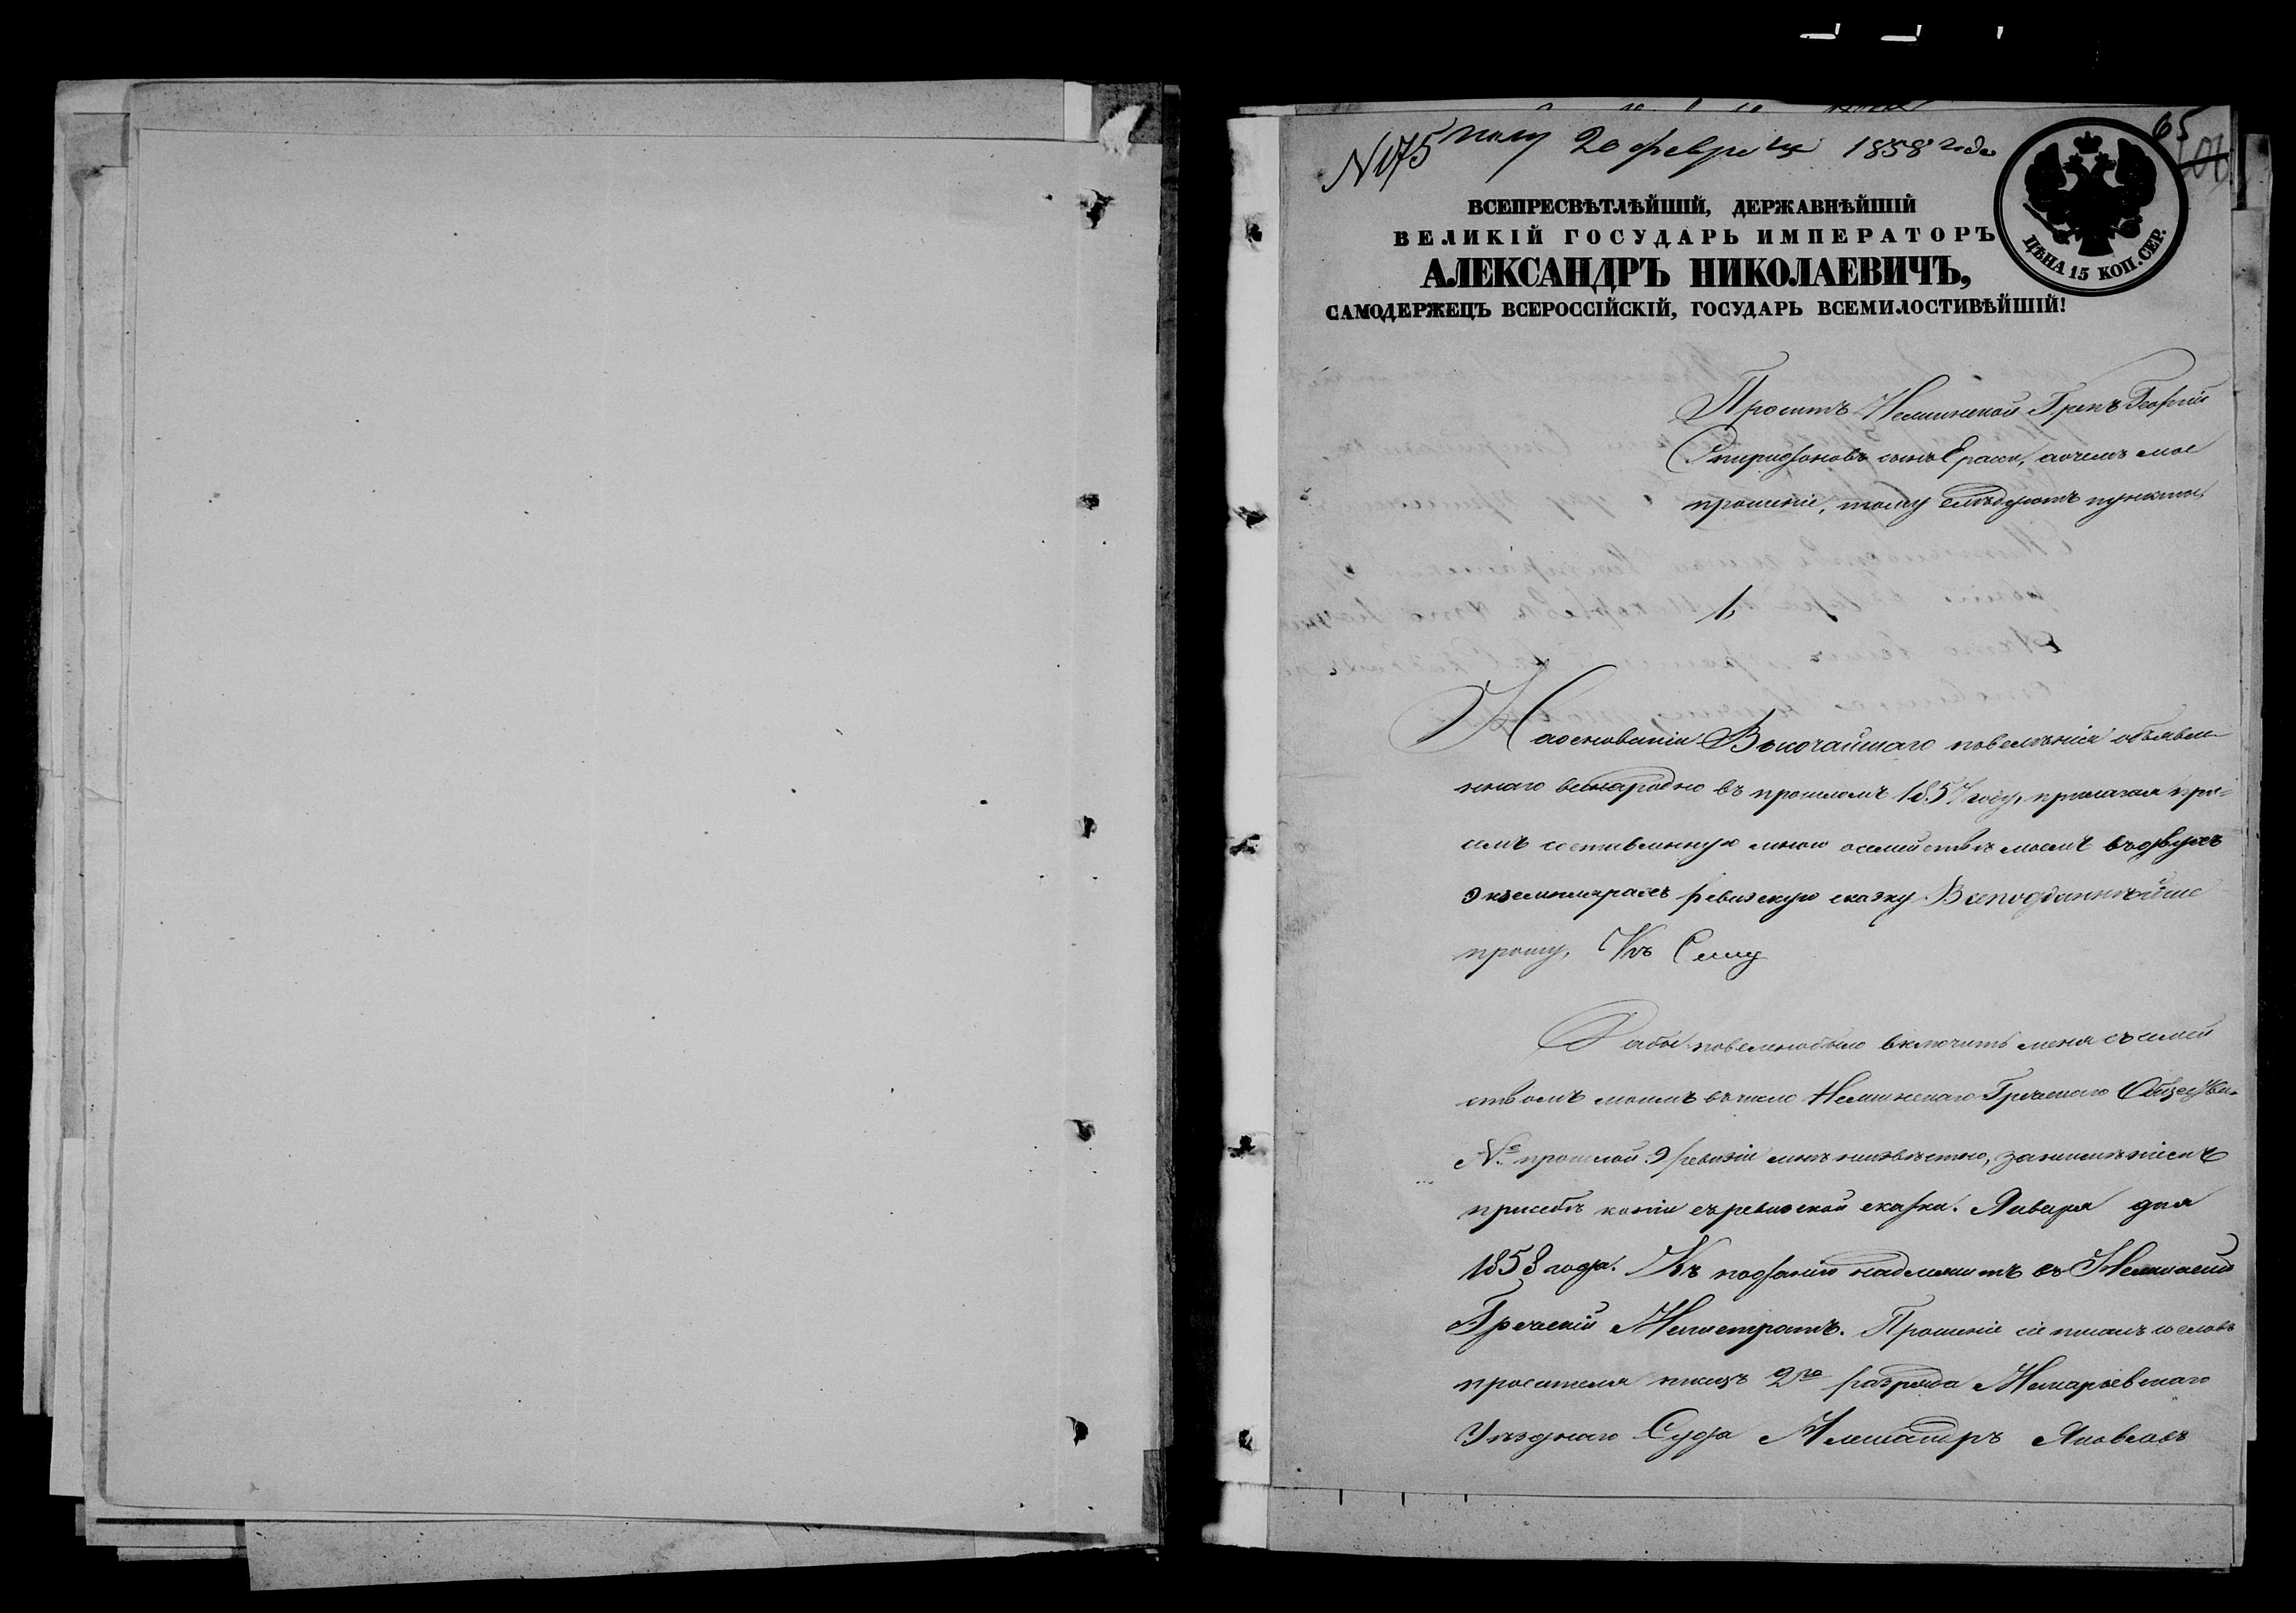 65
N 175 полу 20 февраля 1858 года
ВСЕПРЕСВѢТЛѢЙШІЙ, ДЕРЖАВНѢЙШІЙ
ВЕЛИКІЙ ГОСУДАРЬ ИМПЕРАТОРЪ
АЛЕКСАНДРЪ НИКОЛАЕВИЧЪ,
САМОДЕРЖЕЦЪ ВСЕРОССІЙСКІЙ, ГОСУДАРЬ ВСЕМИЛОСТИВѢЙШІЙ!
ЦѢНА 15 КОП. СЕР.
Проситъ Нежинской Грекъ Георгій
Спиридоновъ сынъ а о чемъ мое
прошеніе, тому слѣдуютъ пункты
1,
На основаніи Высочайшаго повелѣнія объявле-
ннаго всенародно въ прошломъ 1857 году, прилагая при-
семъ составленную мною о семействѣ моемъ въ двухъ
экземплярахъ ревизскую сказку Всеподданнѣйше
прошу, Къ Сему
Дабы повелѣно было включить меня съ семей
ствомъ моимъ въ число Нежинскаго Греческаго Общества.
№ прошлой 9 ревизіи мнѣ неизвѣстно, за неимѣніемъ
при себѣ копіи съ ревизской сказки. Января дня
1858 года. Къ поданію надлежитъ въ Нежинскій
Греческій Магистратъ. Прошеніе сіе писалъ со словъ
просителя писецъ 2го разряда Макарьевскаго
Уѣзднаго Суда Александръ Яковлевъ